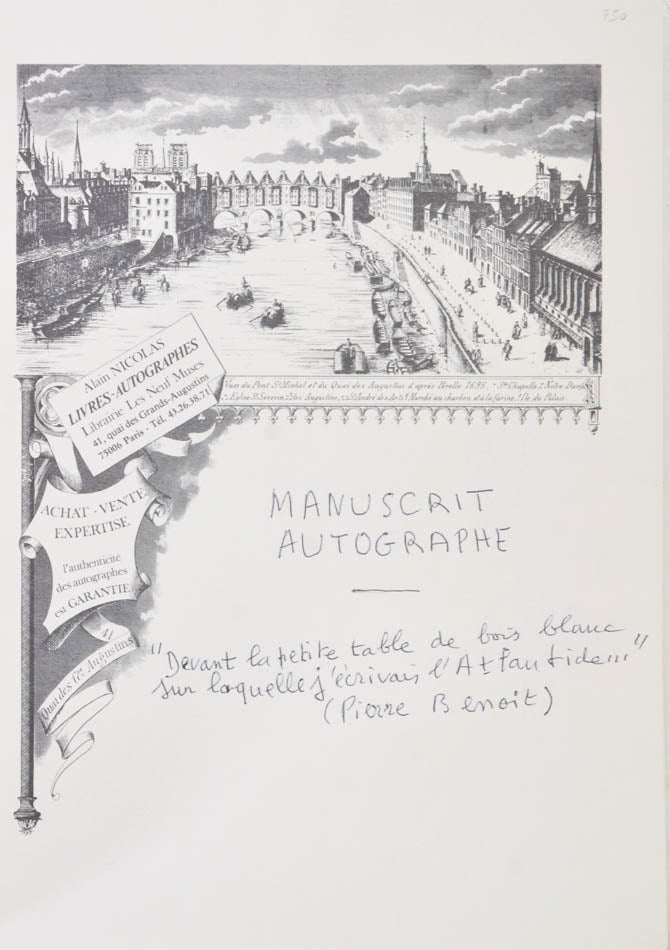 750
Alain NICOLAS
LIVRES-AUTOGRAPHES
Librairie Les Neuf Muses
41, quai des Grands-Augustins
75006 Paris - Tél. 43.26.38.71
Vuës du Pont St Michel et du Quai des Augustins d'après Pérelle 1695. Ste Chapelle. Notre-Dame
Eglise St Severin. les Augustins. St André des Arts. Marché au charbon et à la farine. Ile du Palais.
ACHAT - VENTE
EXPERTISE
l'authenticité
des autographes
est GARANTIE
41
Quai des Gds Augustins
MANUSCRIT
AUTOGRAPHE
"Devant la petite table de bois blanc
sur laquelle j'écrivais l'Atlantide..."
(Pierre Benoit)